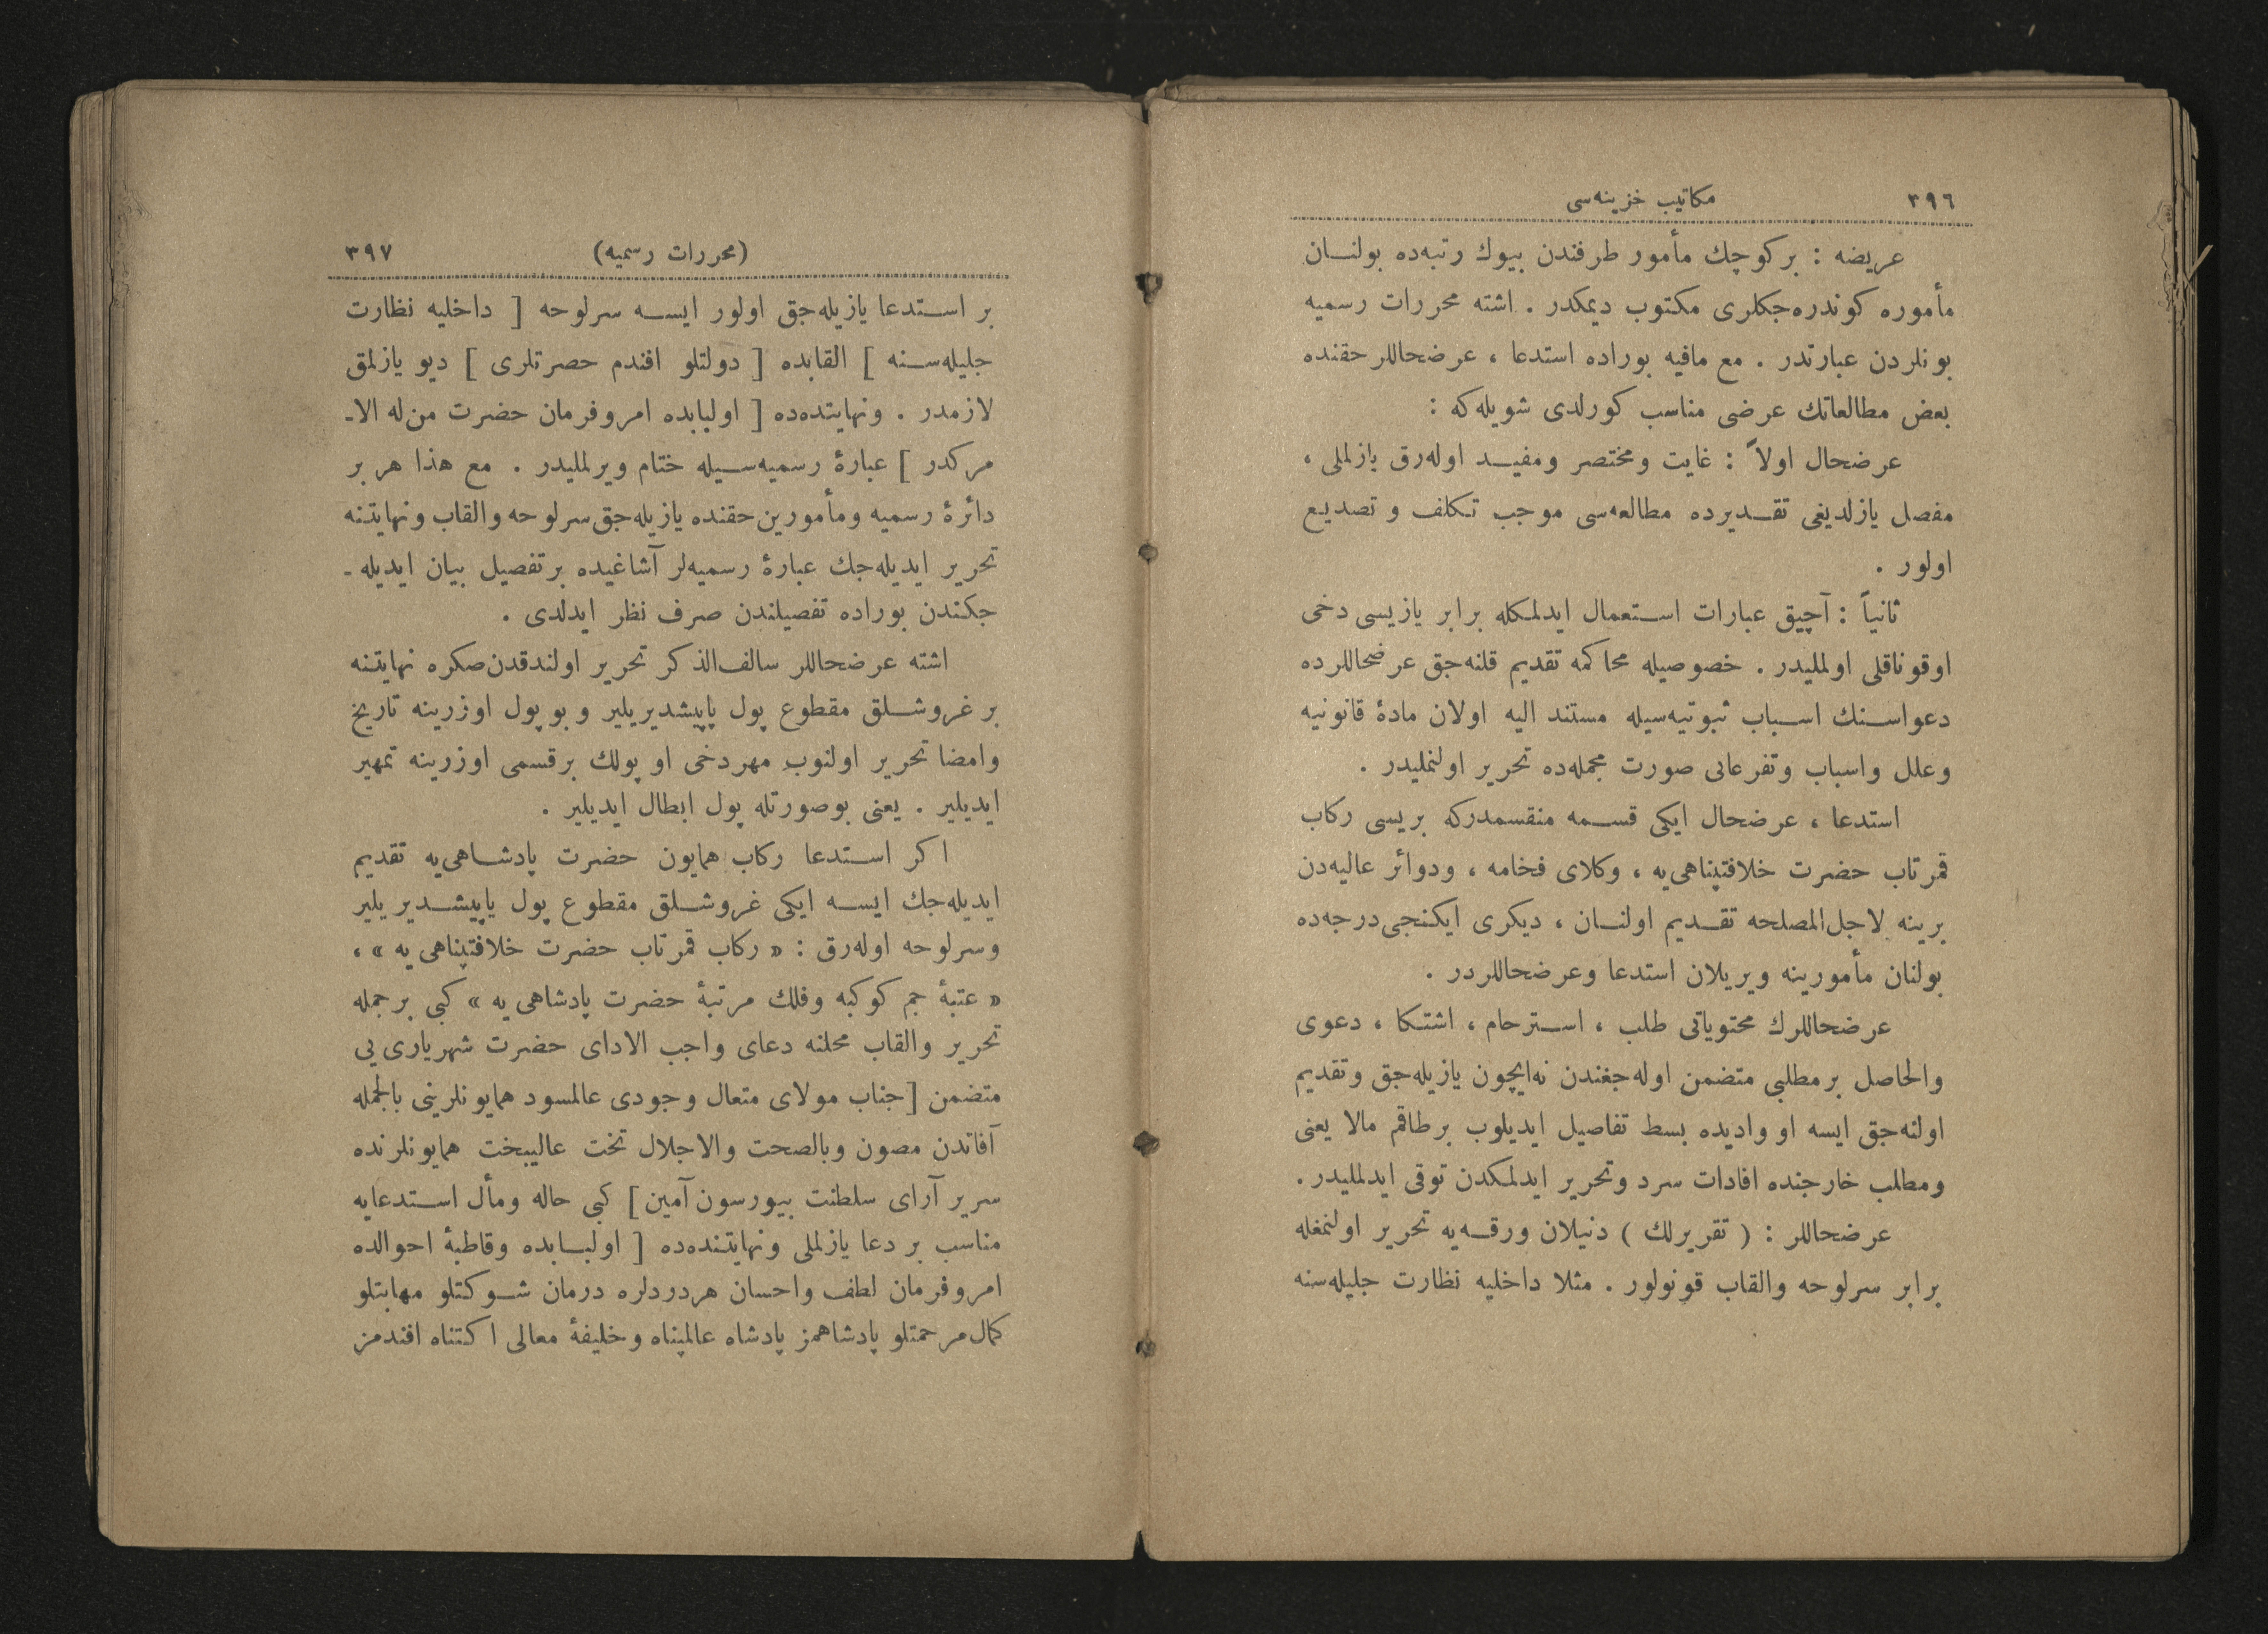 ٣٩٦ مكاتيب خزينه‌سى
عريضه : بركوچك مأمور طرفندن بيوك رتبه‌ده بولنان
مأموره كوندره‌جكلرى مكتوب ديمكدر . اشته محررات رسميه
بونلردن عبارتدر . مع مافيه بوراده استدعا ، عرضحاللر حقنده
بعض مطالعاتك عرضى مناسب كورلدى شويله‌كه :
عرضحال اولاً : غايت ومختصر ومفيد اوله‌رق يازلملى ،
مفصل يازلديغى تقديرده مطالعه‌سى موجب تكلف و تصديع
اولور .
ثانياً : آچيق عبارات استعمال ايدلمكله برابر يازيسى دخى
اوقوناقلى اولمليدر . خصوصيله محاكمه تقديم قلنه‌جق عرضحاللرده
دعواسنك اسباب ثبوتيه‌سيله مستند اليه اولان مادۀ قانونيه
وعلل واسباب وتفرعاتى صورت مجمله‌ده تحرير اولنمليدر .
استدعا ، عرضحال ايكى قسمه منقسمدركه بريسى ركاب
قمرتاب حضرت خلافتپناهى‌يه ، وكلاى فخامه ، ودوائر عاليه‌دن
برينه لاجل‌المصلحه تقديم اولنان ، ديكرى ايكنجى درجه‌ده
بولنان مأمورينه ويريلان استدعا وعرضحاللردر .
عرضحاللرك محتوياتى طلب ، استرحام ، اشتكا ، دعوى
والحاصل برمطلبى متضمن اوله‌جغندن نه‌ايچون يازيله‌جق وتقديم
اولنه‌جق ايسه او واديده بسط تفاصيل ايديلوب برطاقم مالا يعنى
ومطلب خارجنده افادات سرد وتحرير ايدلمكدن توقى ايدلمليدر .
عرضحاللر : ( تقريرلك ) دنيلان ورقه‌يه تحرير اولنمغله
برابر سرلوحه والقاب قونولور . مثلا داخليه نظارت جليله‌سنه
(محررات رسميه) ٣٩٧
بر استدعا يازيله‌جق اولور ايسه سرلوحه [ داخليه نظارت
جليله‌سنه ] القابده [ دولتلو افندم حصرتلرى ] ديو يازلمق
لازمدر . ونهايتده‌ده [ اولبابده امروفرمان حضرت من له الا-
مركدر ] عبارۀ رسميه‌سيله ختام ويرلمليدر . مع هذا هر بر
دائرۀ رسميه ومأمورين حقنده يازيله‌جق سرلوحه والقاب ونهايتنه
تحرير ايديله‌جك عبارۀ رسميه‌لر آشاغيده برتفصيل بيان ايديله-
جكندن بوراده تفصيلندن صرف نظر ايدلدى .
اشته عرضحاللر سالف‌الذكر تحرير اولندقدن صكره نهايتنه
بر غروشلق مقطوع پول ياپيشديريلير و بو پول اوزرينه تاريخ
وامضا تحرير اولنوب مهردخى او پولك برقسمى اوزرينه تمهير
ايديلير . يعنى بوصورتله پول ابطال ايديلير .
اكر استدعا ركاب همايون حضرت پادشاهى‌يه تقديم
ايديله‌جك ايسه ايكى غروشلق مقطوع پول ياپيشديريلير
وسرلوحه اوله‌رق : « ركاب قمرتاب حضرت خلافتپناهى يه » ،
« عتبۀ جم كوكبه وفلك مرتبۀ حضرت پادشاهى يه » كبى برجمله
تحرير والقاب محلنه دعاى واجب الاداى حضرت شهريارى يى
متضمن [ جناب مولاى متعال وجودى عالمسود همايونلرينى بالجمله
آفاتدن مصون وبالصحت والاجلال تخت عاليبخت همايونلرنده
سرير آراى سلطنت بيورسون آمين ] كبى حاله ومأل استدعايه
مناسب بر دعا يازلملى ونهايتنده‌ده [ اولبابده وقاطبۀ احوالده
امروفرمان لطف واحسان هردردلره درمان شوكتلو مهابتلو
كمال مرحمتلو پادشاهمز پادشاه عالمپناه وخليفۀ معالى اكتناه افندمز